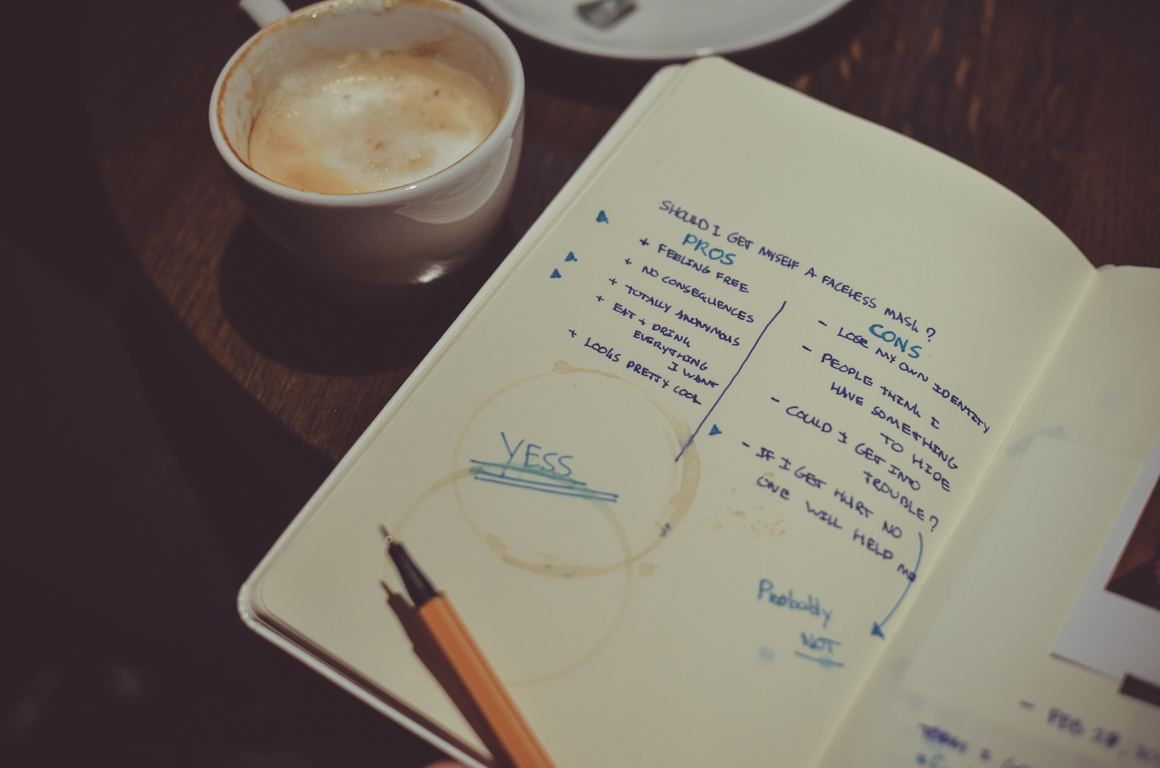 SHOULD I GET MYSELF A FACELESS MASK?
PROS
+ FEELING FREE
+ NO CONSEQUENCES
+ TOTALLY ANONYMOUS
+ EAT + DRINK
EVERYTHING
I WANT
+ LOOKS PRETTY COOL
YESS
CONS
- LOSE MY OWN IDENTITY
- PEOPLE THINK I
HAVE SOMETHING
TO HIDE
- COULD I GET INTO
TROUBLE?
- IF I GET HURT NO
ONE WILL HELP ME
Probably
NOT
- FEB 28,